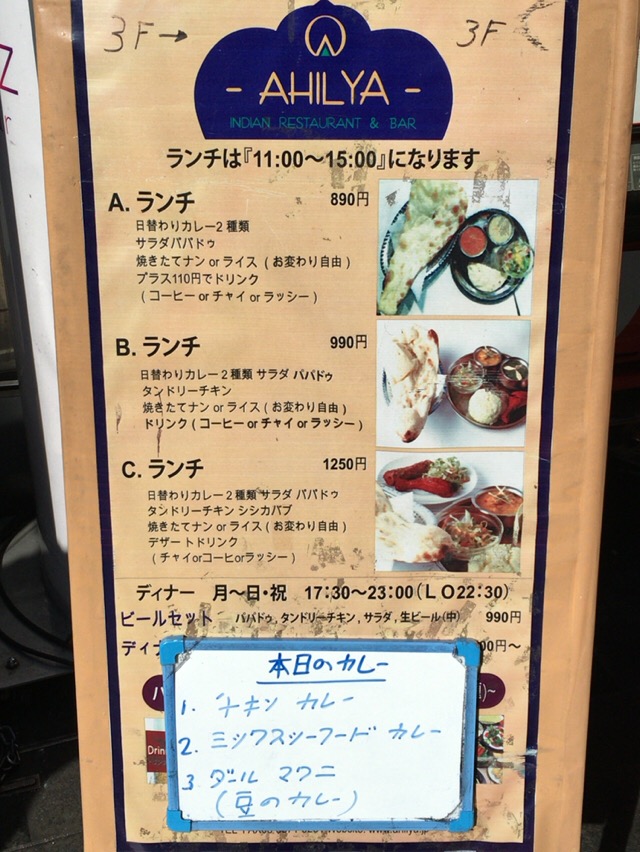 3F→
3F
AHILYA
INDIAN RESTAURANT & BAR
ランチは『11:00〜15:00』になります
A. ランチ 890円
日替わりカレー2 種類
サラダパパドゥ
焼きたてナン or ライス ( お変わり自由 )
プラス110円でドリンク
( コーヒー or チャイ or ラッシー )
B. ランチ 990円
日替わりカレー 2 種類 サラダ パパドゥ
タンドリーチキン
焼きたてナン or ライス ( お変わり自由 )
ドリンク ( コーヒー or チャイ or ラッシー )
C. ランチ 1250円
日替わりカレー 2 種類 サラダ パパドゥ
タンドリーチキン シシカバブ
焼きたてナン or ライス ( お変わり自由 )
デザートドリンク
( チャイorコーヒorラッシー )
ディナー 月〜日・祝 17:30〜23:00(LO22:30)
ビールセット パパドゥ, タンドリーチキン, サラダ, 生ビール(中) 990円
ディ 00円〜
本日のカレー
1. チキン カレー
2. ミックスシーフード カレー
3. ダール マクニ
(豆のカレー)
Drin